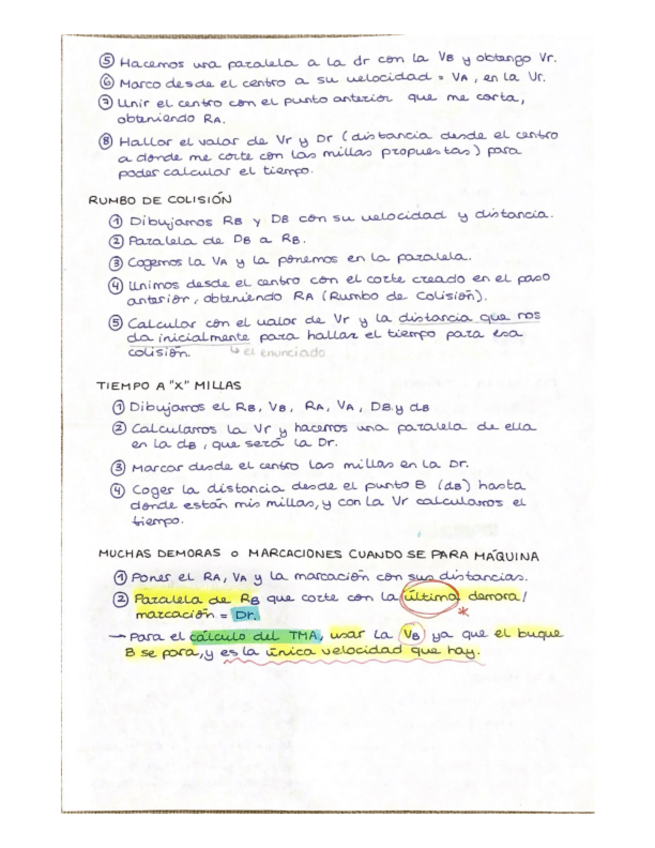 ⑤ Hacemos una paralela a la dr con la VB y obtengo Vr.
⑥ Marco desde el centro a su velocidad = VA, en la Vr.
⑦ Unir el centro con el punto anterior que me corta,
obteniendo RA.
⑧ Hallar el valor de Vr y Dr (distancia desde el centro
a donde me corte con las millas propuestas) para
poder calcular el tiempo.
RUMBO DE COLISIÓN
① Dibujamos RB y DB con su velocidad y distancia.
② Paralela de DB a RB.
③ Cogemos la VA y la ponemos en la paralela.
④ Unimos desde el centro con el corte creado en el paso
anterior, obteniendo RA (Rumbo de Colisión).
⑤ Calcular con el valor de Vr y la distancia que nos
da inicialmente para hallar el tiempo para esa
colisión. ↳ el enunciado
TIEMPO A "X" MILLAS
① Dibujamos el RB, VB, RA, VA, DB y dB
② Calculamos la Vr y hacemos una paralela de ella
en la dB, que será la Dr.
③ Marcar desde el centro las millas en la Dr.
④ Coger la distancia desde el punto B (dB) hasta
donde están mis millas, y con la Vr calculamos el
tiempo.
MUCHAS DEMORAS o MARCACIONES CUANDO SE PARA MÁQUINA
① Poner el RA, VA y la marcación con sus distancias.
② Paralela de RB que corte con la última demora/
marcación = Dr. *
→ Para el cálculo del TMA, usar la VB ya que el buque
B se para, y es la única velocidad que hay.